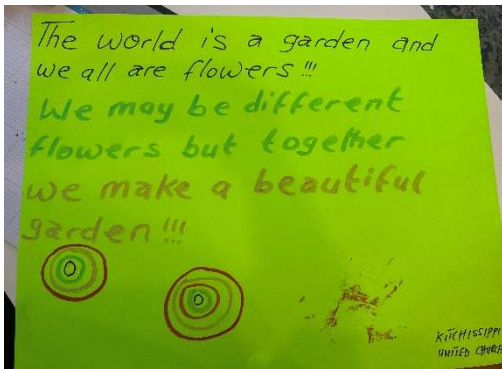 The world is a garden and
we all are flowers!!!
We may be different
flowers but together
we make a beautiful
garden!!!
KITCHISSIPPI
UNITED CHURCH